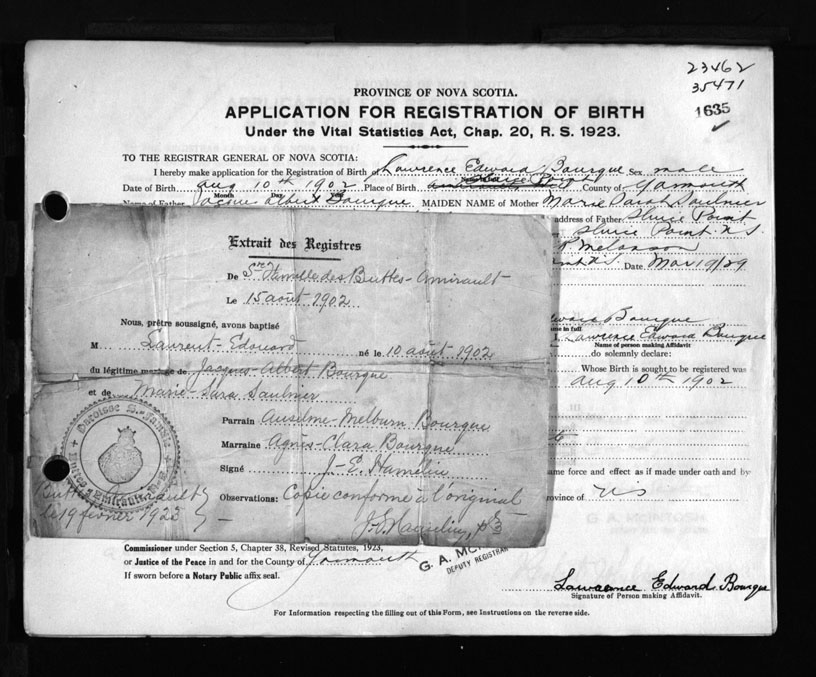 23462
35471
1635
PROVINCE OF NOVA SCOTIA.
APPLICATION FOR REGISTRATION OF BIRTH
Under the Vital Statistics Act, Chap. 20, R. S. 1923.
TO THE REGISTRAR GENERAL OF NOVA SCOTIA:
I hereby make application for the Registration of Birth of Lawrence Edward Bourque Sex male
Date of Birth Aug 10th 1902 Place of Birth County of Yarmouth
Month Day Year
Name of Father Jacques Albert Bourque MAIDEN NAME of Mother Marie Sarah Saulnier
address of Father Sluice Point
Sluice Point N.S.
R. Melanson
Date Mar 19/29
Edward Bourque
me in full
I, Lawrence Edward Bourque
Name of person making Affidavit
do solemnly declare:
Whose Birth is sought to be registered was
Aug 10th 1902
ame force and effect as if made under oath and by
rovince of N S
Extrait des Registres
De Ste Famille des Buttes-Amirault
Le 15 août 1902
Nous, prêtre soussigné, avons baptisé
M Laurent-Edouard né le 10 août 1902
du légitime mariage de Jacques-Albert Bourque
et de Marie-Sara Saulnier
Parrain Anselme-Melburn Bourque
Marraine Agnès-Clara Bourque
Signé J.-E. Hamelin
Observations: Copie conforme à l'original
J. E. Hamelin, ptre
Buttes Amirault
le 19 février
Commissioner under Section 5, Chapter 38, Revised Statutes, 1923,
or Justice of the Peace in and for the County of Yarmouth
If sworn before a Notary Public affix seal.
G. A. MC
DEPUTY REGISTRAR
Lawrance Edward Bourque
Signature of Person making Affidavit.
For Information respecting the filling out of this Form, see Instructions on the reverse side.